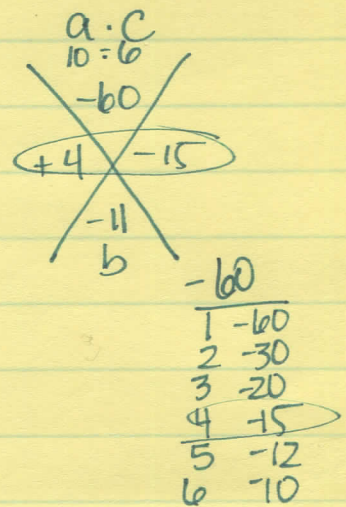 a · C
10 = 6
-60
+4 -15
-11
b
-60
1 -60
2 -30
3 -20
4 -15
5 -12
6 -10